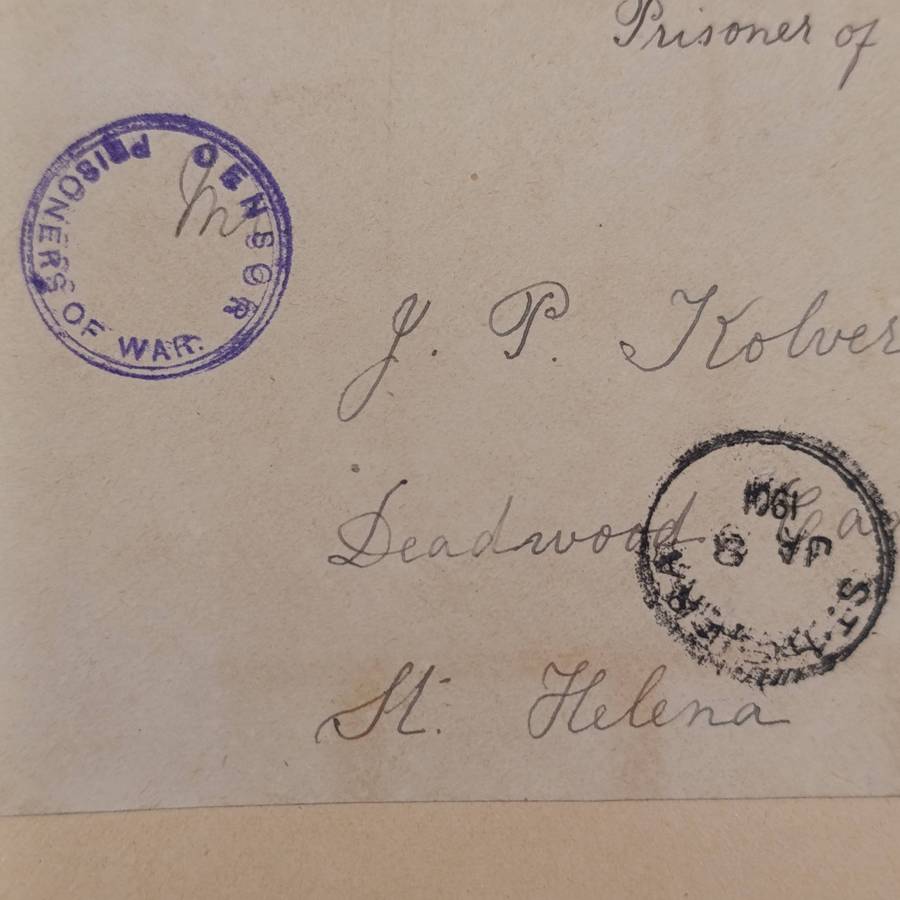 Prisoner of
CENSOR
PRISONERS OF WAR.
Mr
J. P. Kolver
Deadwood
St. Helena
1901
JA
ST.